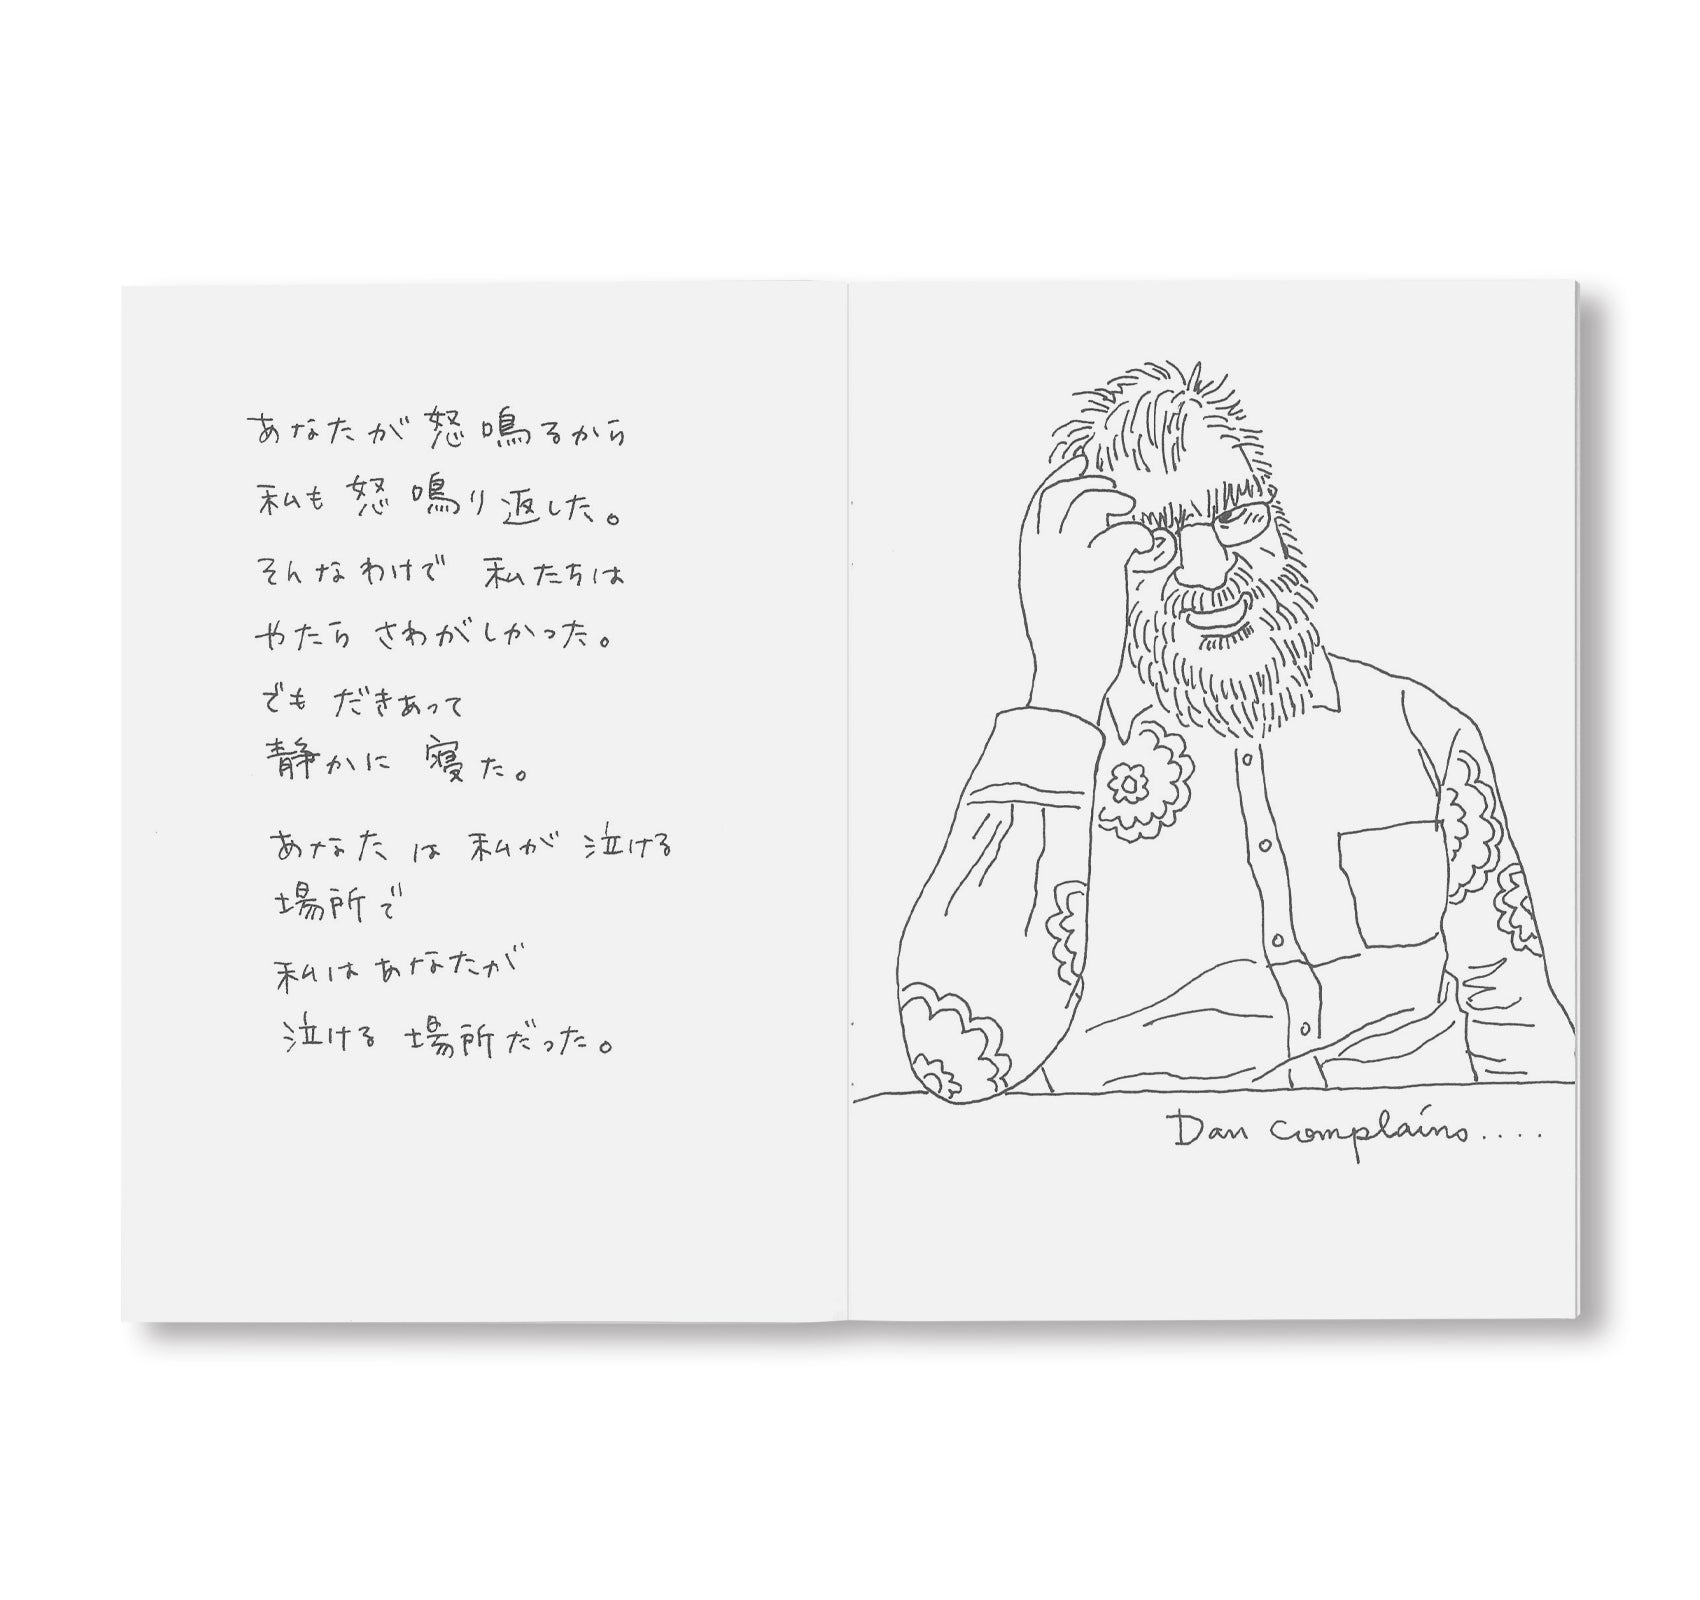 あなたが怒鳴るから
私も怒鳴り返した。
そんなわけで 私たちは
やたら さわがしかった。
でも だきあって
静かに 寝た。
あなたは 私が 泣ける
場所で
私は あなたが
泣ける 場所だった。
Dan complains....